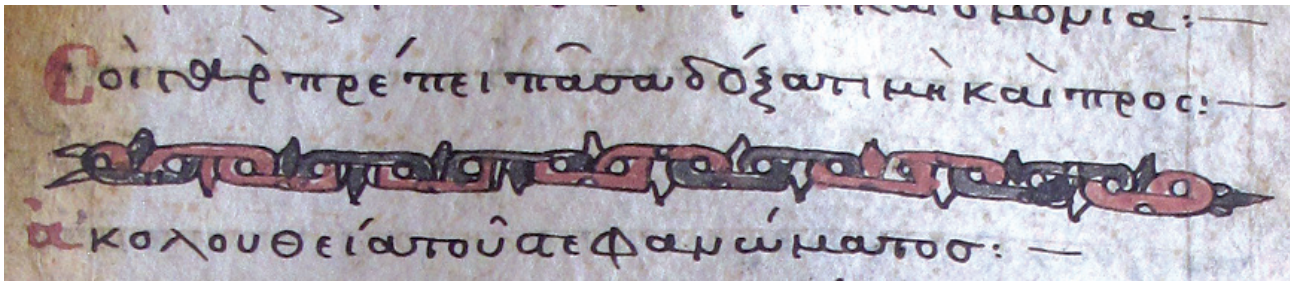 Σοὶ γὰρ πρέπει πᾶσα δόξα τιμὴ καὶ προς:—
ἀκολουθεία τοῦ στεφανώματοσ:—